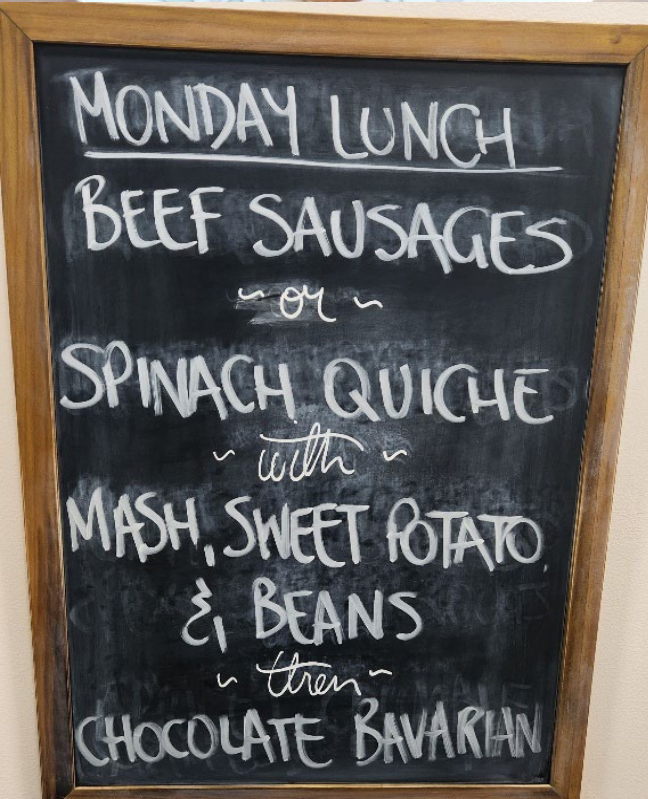 MONDAY LUNCH
BEEF SAUSAGES
~ or ~
SPINACH QUICHE
~ with ~
MASH, SWEET POTATO
& BEANS
~ then ~
CHOCOLATE BAVARIAN